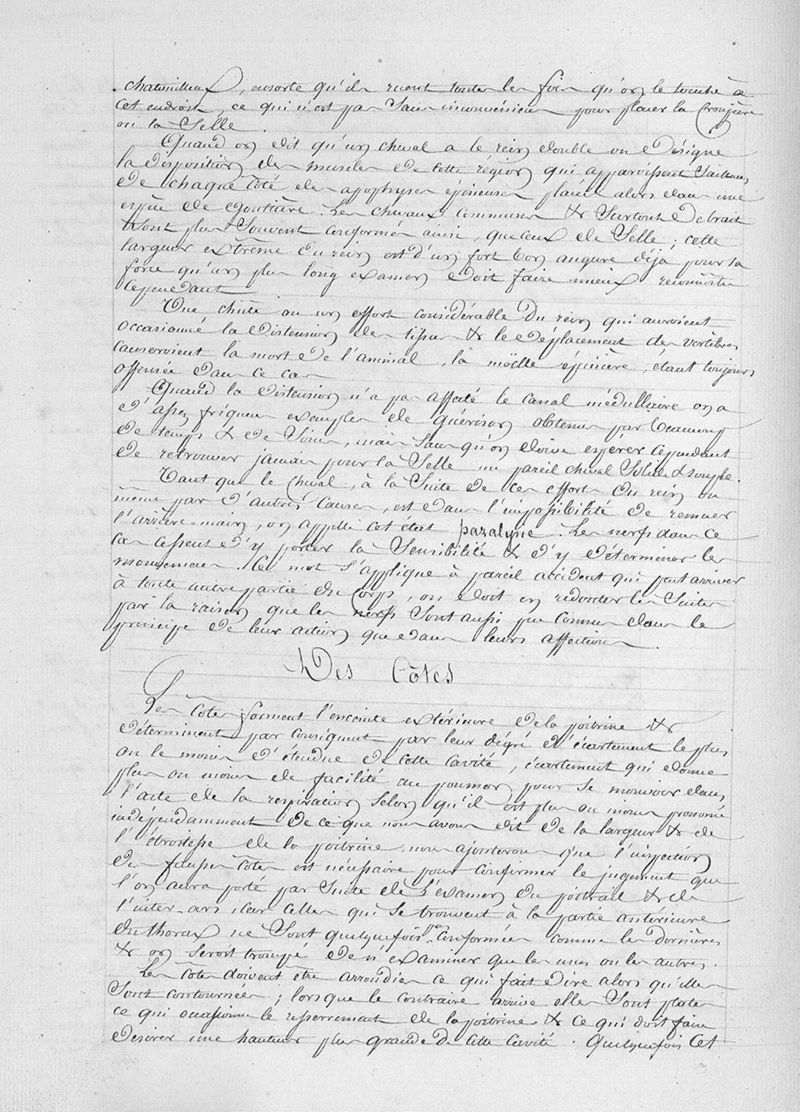 chatouilleux, ensorte qu'ils ruent toutes les fois qu'on les touche à
cet endroit, ce qui n'est pas sans inconvénient pour placer la Croupière
ou la Selle.
Quand on dit qu'un cheval a le rein double on désigne
la disposition des muscles de cette région qui apparoissent saillans
de chaque côté des apophyses épineuses placées alors dans une
espèce de Gouttière. Les chevaux communs & surtout de trait
sont plus souvent conformés ainsi, que ceux de Selle; cette
largeur extrême du rein est d'un fort bon augure déjà pour sa
force qu'un plus long examen doit faire mieux reconnoître
cependant.
Une chûte ou un effort considérable du rein qui auroient
occasionné la distension des tissus & le déplacement des vertèbres
causeroient la mort de l'animal, la moëlle épinière, étant toujours
offensée dans ce cas.
Quand la distension n'a pas affecté le canal médullaire on a
d'assez fréquens exemples de guérison obtenue par beaucoup
de temps & de soins, mais sans qu'on doive espérer cependant
de retrouver jamais pour la Selle un pareil cheval solide & souple.
Tant que le cheval, à la suite de ces efforts du rein ou
même par d'autres causes, est dans l'impossibilité de remuer
l'arrière-main, on appelle cet état paralysie. Les nerfs dans ce
cas cessent d'y porter la sensibilité & d'y déterminer les
mouvemens. Ce mot s'applique à pareil accident qui peut arriver
à toute autre partie du Corps, on doit en redouter les suites
par la raison que les nerfs sont aussi peu connus dans le
principe de leur action que dans leurs affections.
Des Côtes
Les côtes forment l'enceinte extérieure de la poitrine &
déterminent par conséquent par leur dégré d'écartement le plus
ou le moins d'étendue de cette cavité, écartement qui donne
plus ou moins de facilité au poumon pour se mouvoir dans
l'acte de la respiration selon qu'il est plus ou moins prononcé
indépendamment de ce que nous avons dit de la largeur & de
l'étroitesse de la poitrine, nous ajouterons que l'inspection
des fausses côtes est nécessaire pour confirmer le jugement que
l'on aura porté par suite de l'examen du poitrail & de
l'inter-ars, car celles qui se trouvent à la partie antérieure
du thorax ne sont quelquefois pas conformées comme les dernières
& on seroit trompé de n'examiner que les unes ou les autres.
Les côtes doivent être arrondies ce qui fait dire alors qu'elles
sont contournées; lorsque le contraire arrive elles sont plates
ce qui occasionne le resserrement de la poitrine & ce qui doit faire
désirer une hauteur plus grande de cette cavité. Quelquefois cet